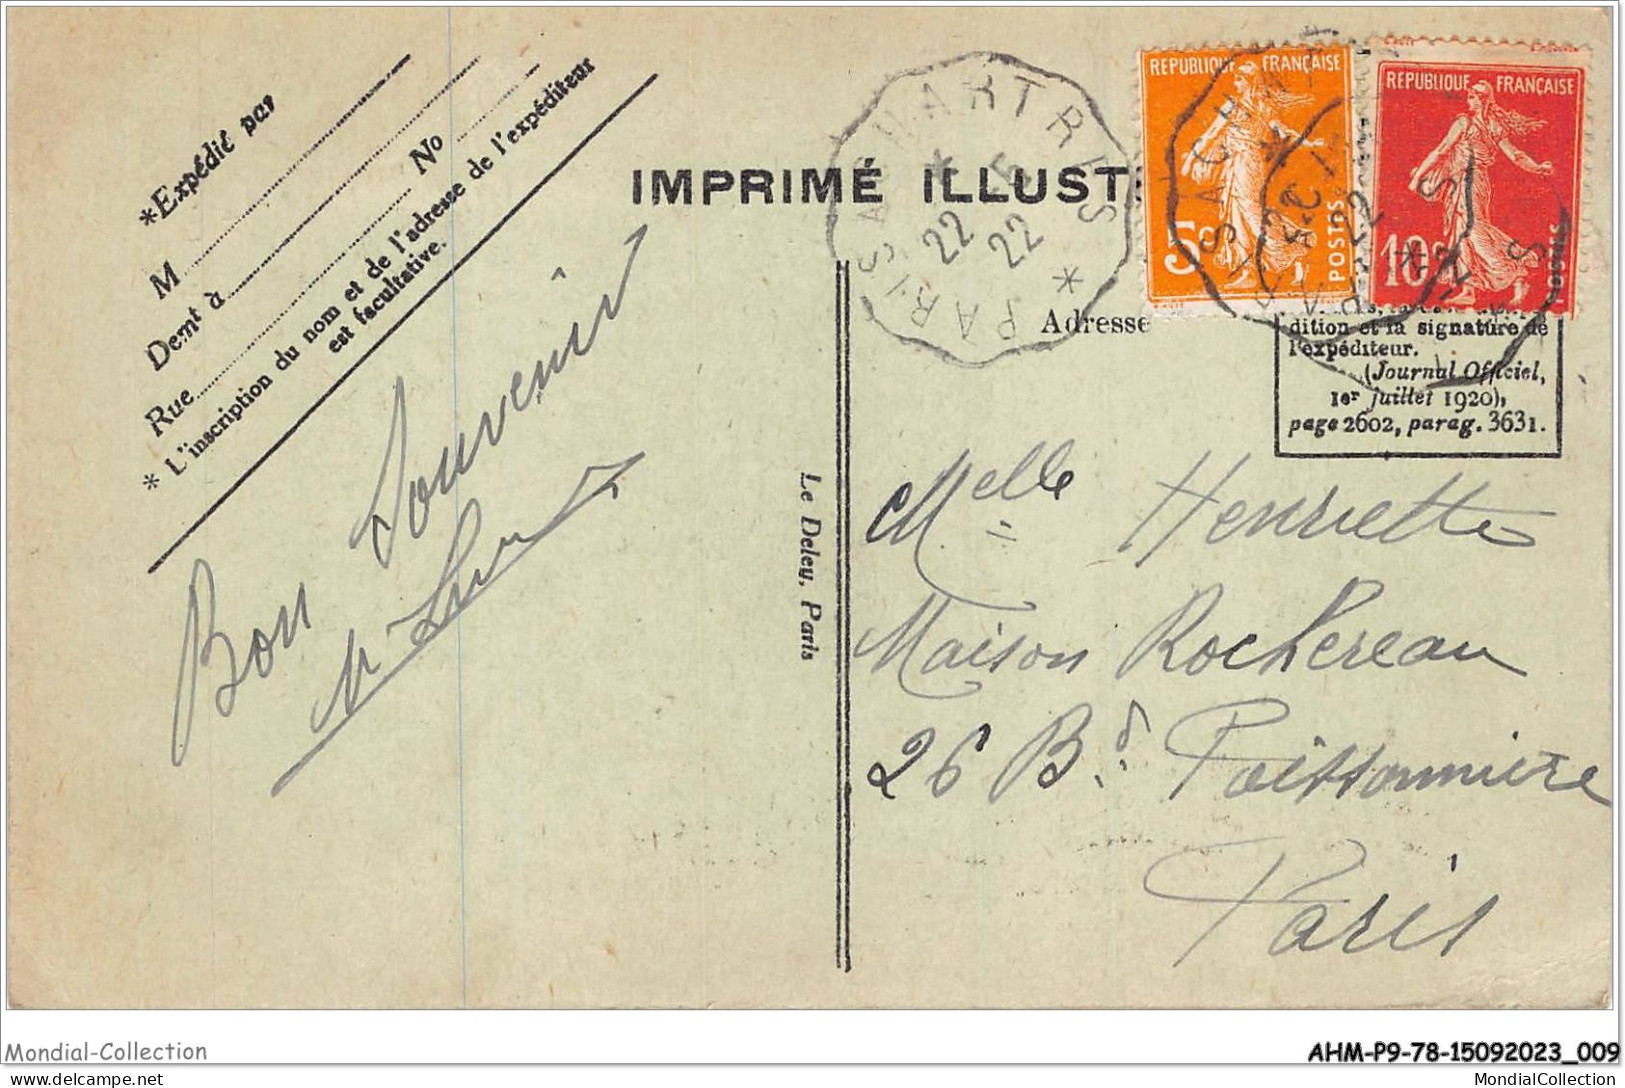 *Expédié par
M
Demt à
No
Rue
* L'inscription du nom et de l'adresse de l'expéditeur
est facultative.
IMPRIMÉ ILLUST
PARIS A CHARTRES
22 - 5
22
PARIS
REPUBLIQUE FRANÇAISE
5c
POSTES
REPUBLIQUE FRANÇAISE
10c
POSTES
Adresse
dition et la signature de
l'expéditeur.
(Journal Officiel,
1er juillet 1920),
page 2602, parag. 3631.
Bon Souvenir
Le Deley, Paris
Melle Henriette
Maison Rochereau
26 Bd. Poissonnière
Paris
Mondial-Collection
AHM-P9-78-15092023_009
delcampe.net
MondialCollection